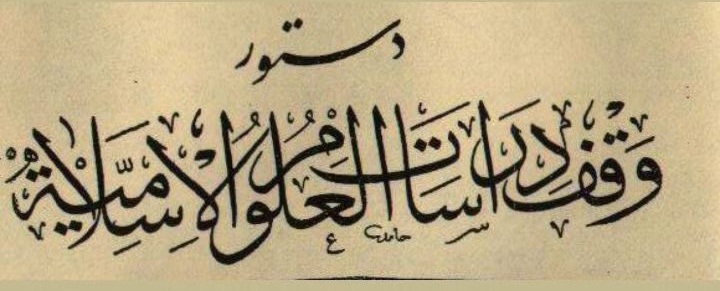 دستور
وَقْفِ دِرَاسَاتِ الْعُلُومِ الْإِسْلَامِيَّةِ